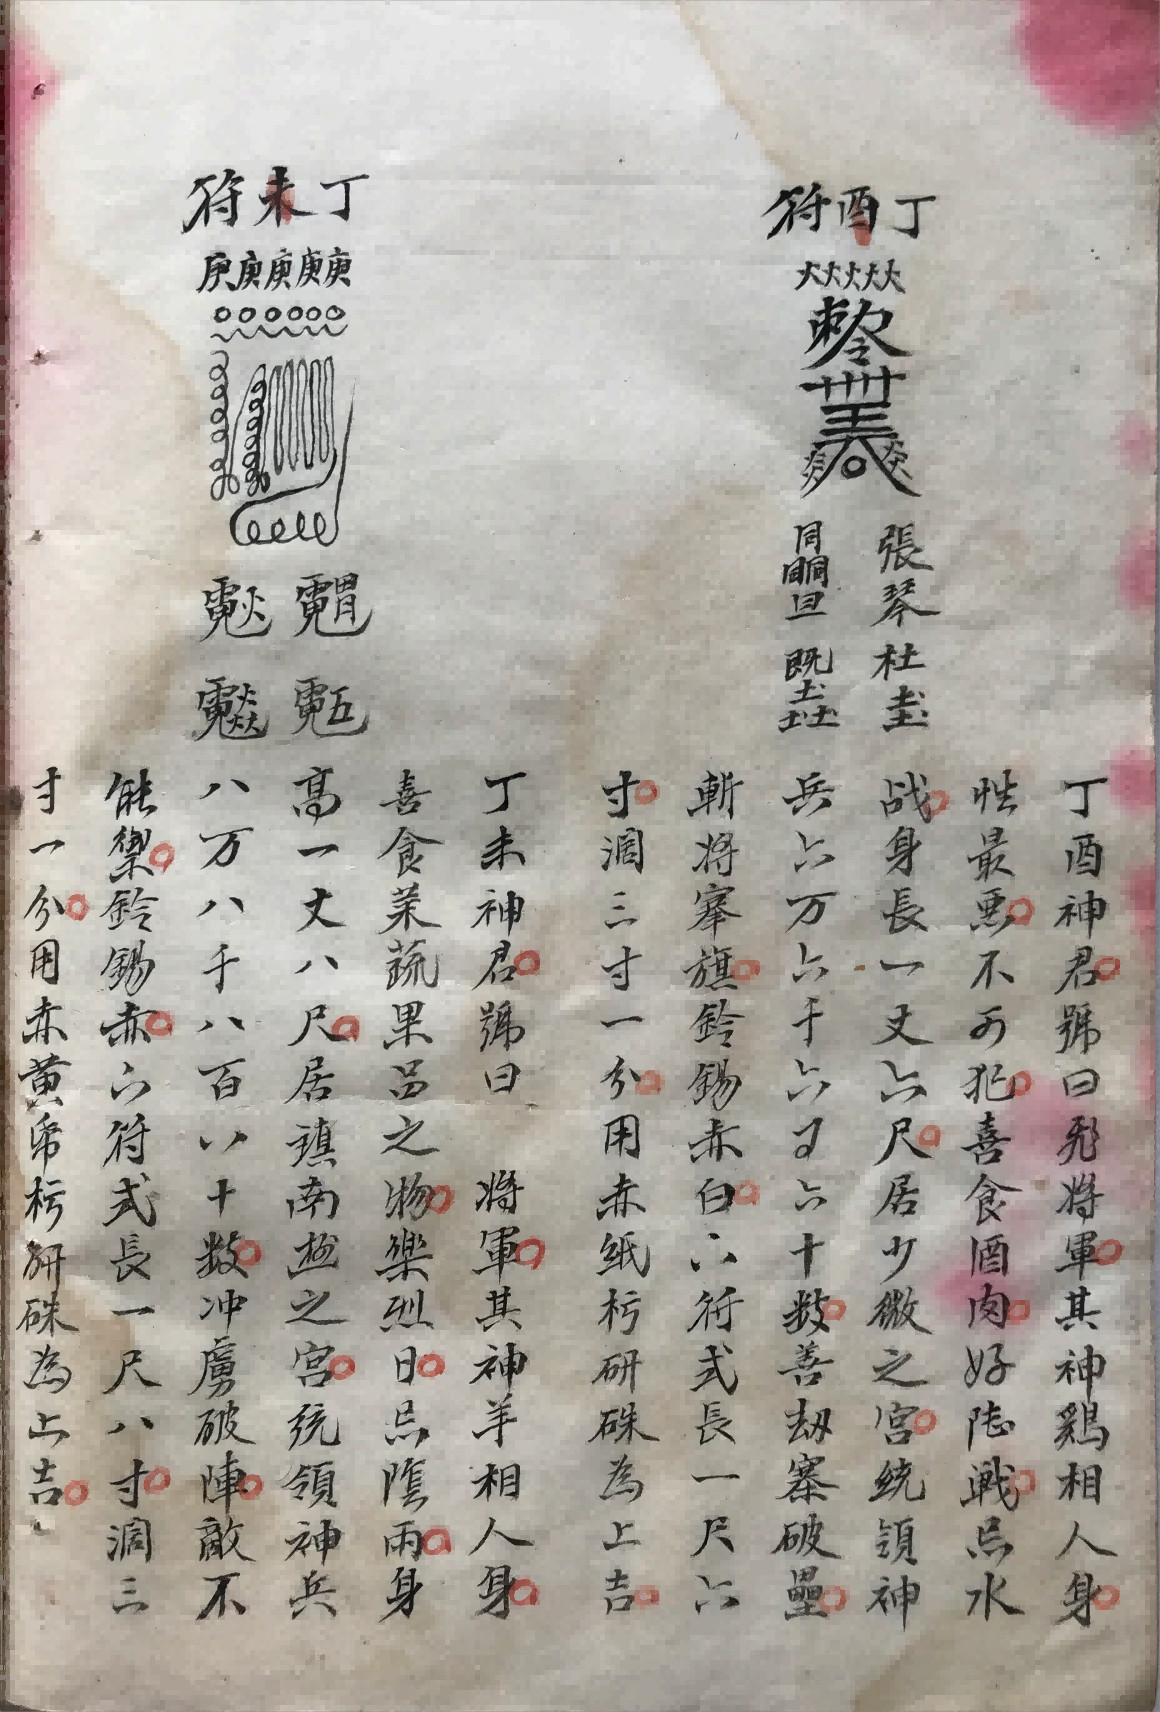 丁酉符
張琴杜
丁酉神君號曰飛將軍其神鷄相人身
性最惡不可犯喜食酒肉好陸戰忌水
战身長一丈六尺居少微之宮統領神
兵六万六千六百六十数善劫寨破壘
斬将搴旗鈴錫赤白六符式長一尺六
寸濶三寸一分用赤紙朽研硃為上吉
丁未符
庚庚庚庚庚
丁未神君號曰 將軍其神羊相人身
喜食菜蔬果品之物樂烈日忌陰雨身
高一丈八尺居鎮南㢟之宮統領神兵
八万八千八百八十数冲虜破陣敵不
能禦鈴錫赤六符式長一尺八寸濶三
寸一分用赤黃帋朽研硃為上吉